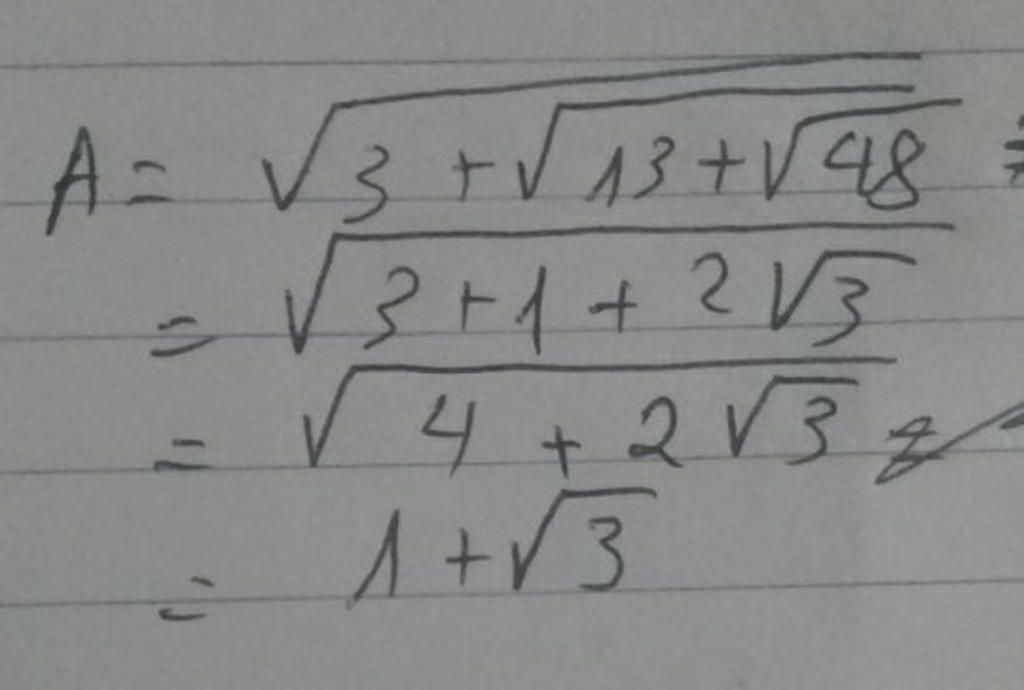 A = √(3 + √(13 + √48)) =
= √(3 + 1 + 2√3)
= √(4 + 2√3)
= 1 + √3